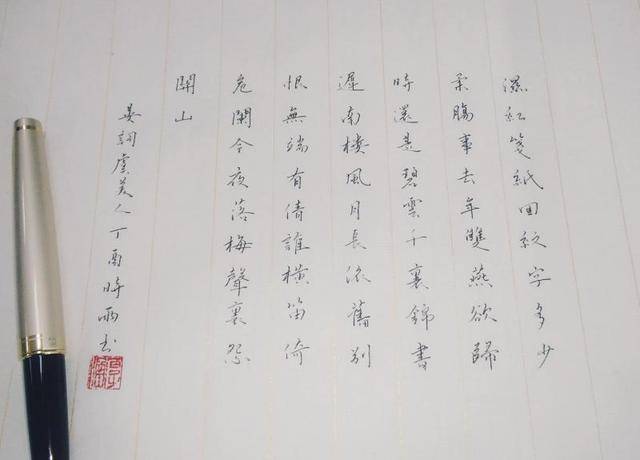 濕紅箋紙回紋字多少
柔腸事去年雙燕欲歸
時還是碧雲千裏錦書
遲南樓風月長依舊別
恨無端有倩誰橫笛倚
危闌今夜落梅聲裏怨
關山
晏詞虞美人丁酉時雨書